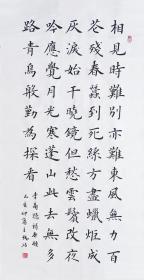 相見時難別亦難東風無力百
花殘春蠶到死絲方盡蠟炬成
灰淚始干曉鏡但愁雲鬢改夜
吟應覺月光寒蓬山此去無多
路青鳥殷勤為探看
李商隱